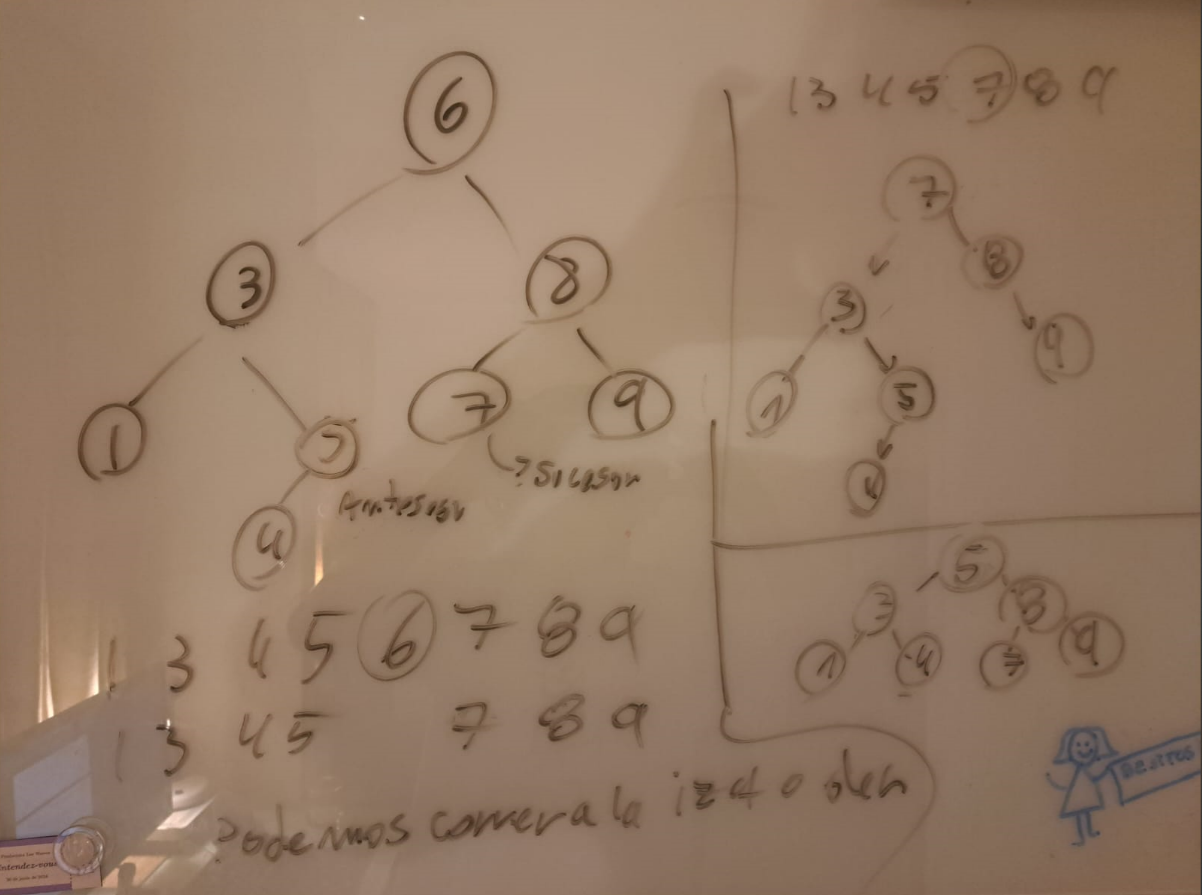 6
3 8
1 5 7 9
4
? Sucesor
Antecesor
1 3 4 5 6 7 8 9
1 3 4 5 7 8 9
Podemos correr a la izq o der
1 3 4 5 7 8 9
7
8
3
9
1 5
4
5
3 8
1 4 7 9
Beatrés
entendez-vous